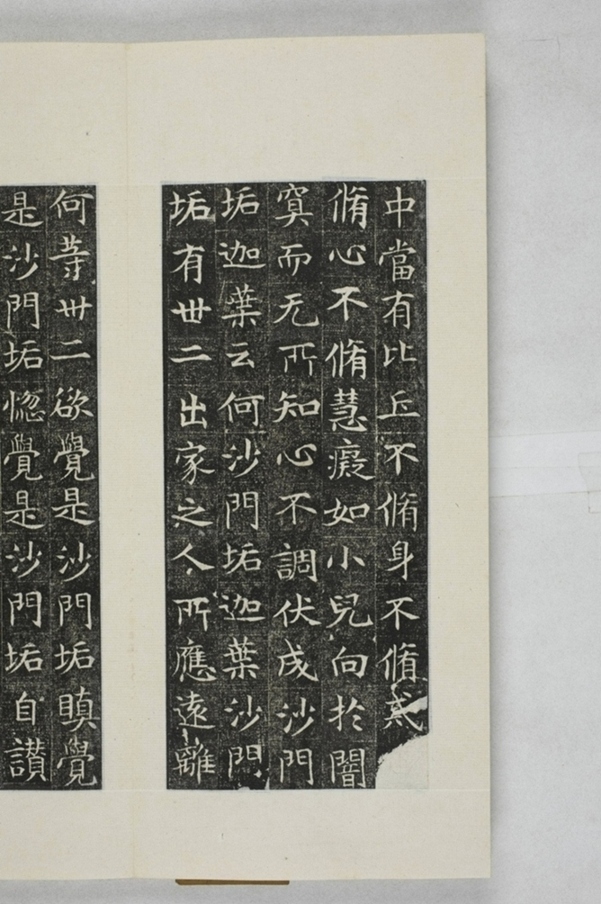 中當有比丘不脩身不脩戒
脩心不脩慧癡如小兒向於闇
冥而无所知心不調伏成沙門
垢迦葉云何沙門垢迦葉沙門
垢有卅二出家之人所應遠離
何等卅二欲覺是沙門垢瞋覺
是沙門垢惚覺是沙門垢自讃